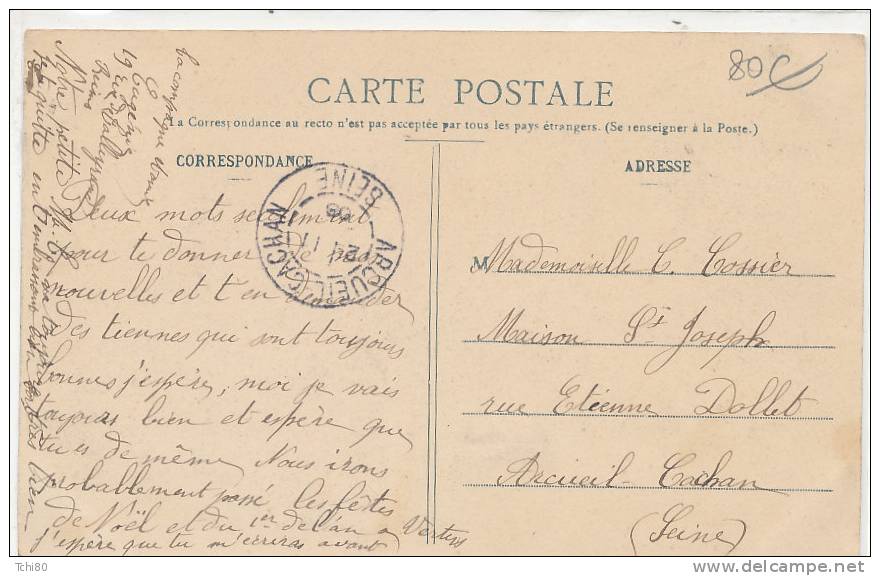 80
CARTE POSTALE
La Correspondance au recto n'est pas acceptée par tous les pays étrangers. (Se renseigner à la Poste.)
CORRESPONDANCE
ADRESSE
Deux mots seulement
pour te donner de mes
nouvelles et t'en demander
des tiennes qui sont toujours
bonnes j'espère, moi je vais
toujours bien et espère que
tu es de même Nous irons
probablement passé les fêtes
de Noël et du 1er de l'an a
j'espère que tu m'écriras avant
Notre petite
te quitte en t'embrassant bien
19 rue
Reims
ARCUEIL-CACHAN
SEINE
24 11
08
Mademoiselle C. Cossier
Maison St Joseph
rue Etienne Dollet
Arcueil-Cachan
(Seine)
Tchi80
delcampe.net